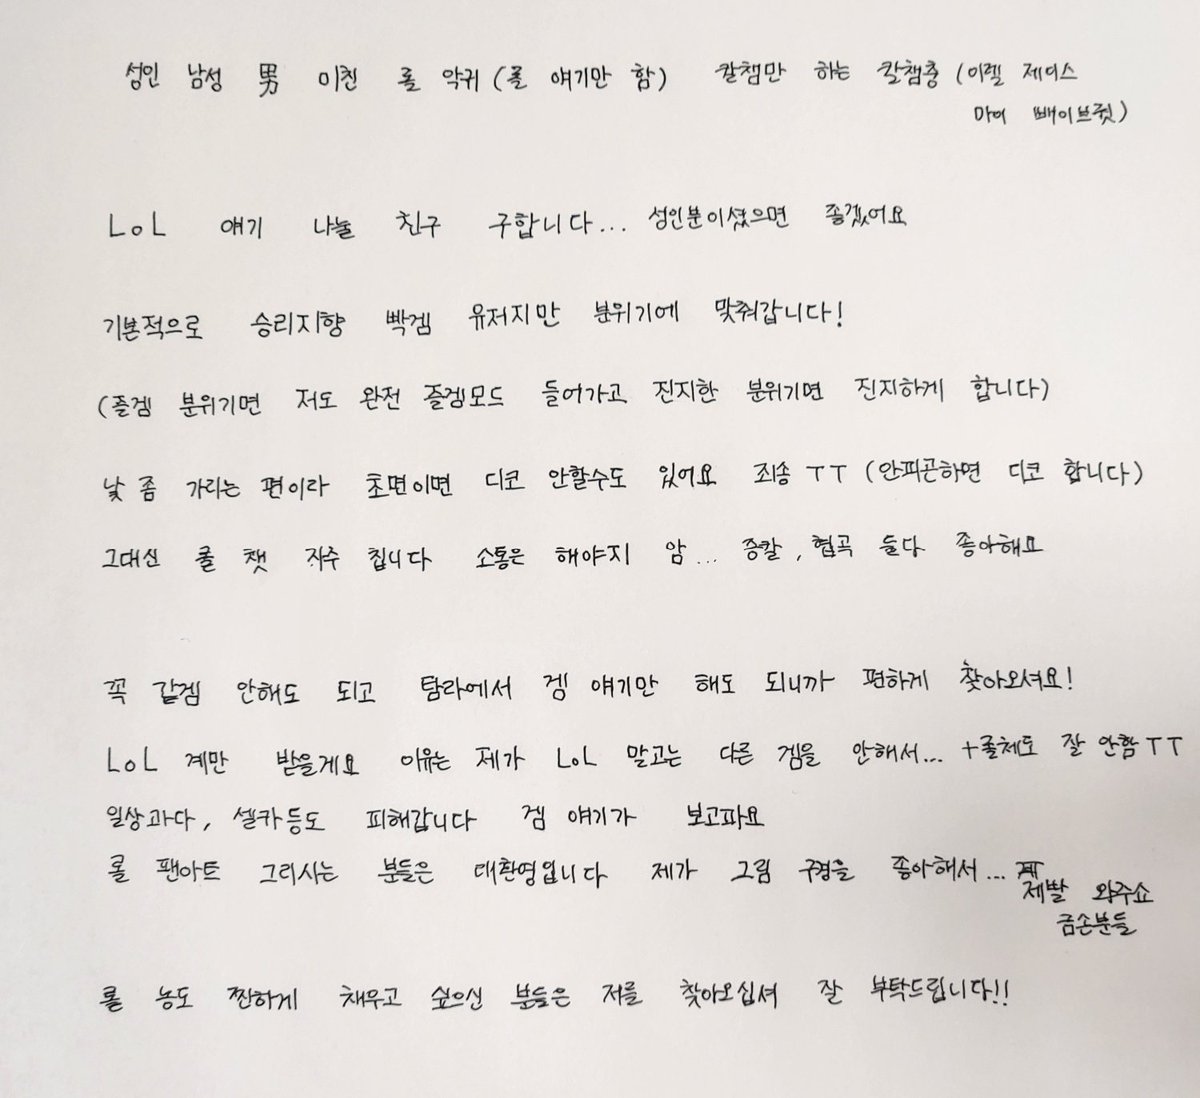 성인 남성 男 미친 롤 악귀 (롤 얘기만 함) 칼챔만 하는 칼챔충 (이렐 제이스
마이 빼이브륏)
LoL 얘기 나눌 친구 구합니다... 성인분이셨으면 좋겠어요
기본적으로 승리지향 빡겜 유저지만 분위기에 맞춰갑니다!
(즐겜 분위기면 저도 완전 즐겜모드 들어가고 진지한 분위기면 진지하게 합니다)
낯 좀 가리는 편이라 초면이면 디코 안할수도 있어요 죄송 ㅜㅜ (안피곤하면 디코 합니다)
그대신 롤 챗 자주 칩니다 소통은 해야지 암... 증칼, 협곡 둘다 좋아해요
꼭 같겜 안해도 되고 탐라에서 겜 얘기만 해도 되니까 편하게 찾아오셔요!
LoL 계만 받을게요 이유는 제가 LoL 말고는 다른 겜을 안해서... +롤체도 잘 안함 ㅜㅜ
일상과다, 셀카등도 피해갑니다 겜 얘기가 보고파요
롤 팬아트 그리시는 분들은 대환영입니다 제가 그림 구경을 좋아해서...
제발 와주쇼
금손분들
롤 농도 찐하게 채우고 싶으신 분들은 저를 찾아오십셔 잘 부탁드립니다!!